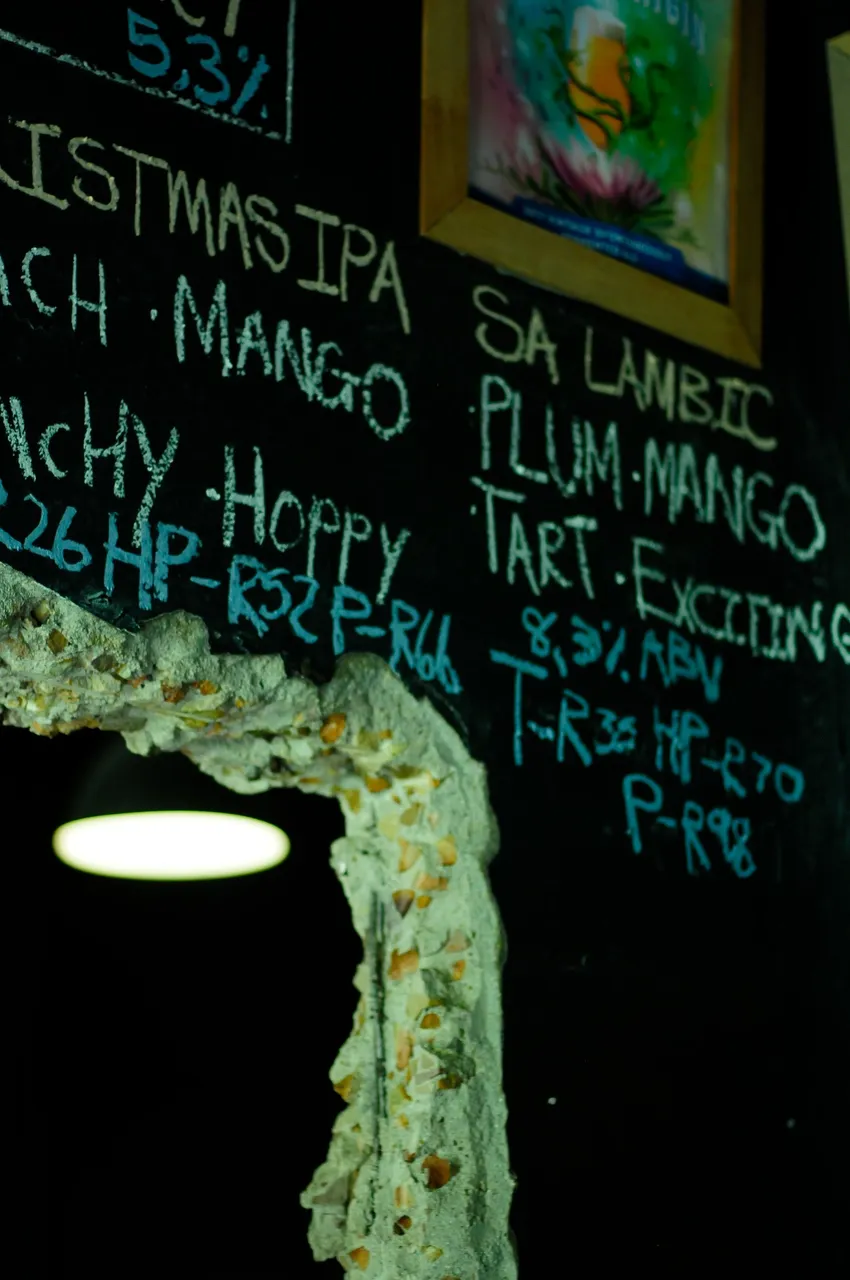 5,3%
ISTMAS IPA
ACH · MANGO
NCHY · HOPPY
R26 HP-R52 P-R66
SA LAMBIC
· PLUM · MANGO
· TART · EXCITING
8,3% ABV
T-R36 HP-R70
P-R98